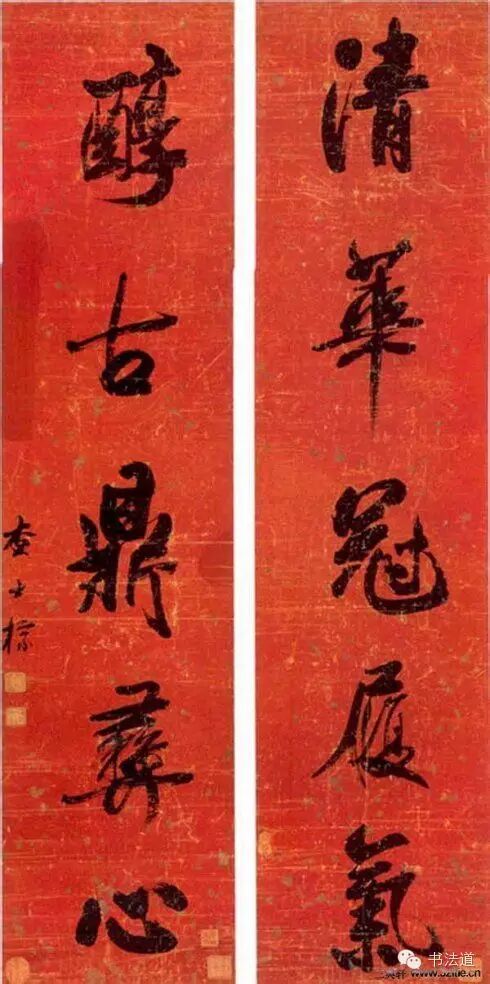 清華冠履氣
醇古鼎彝心
查士標
书法道
www.52itie.com